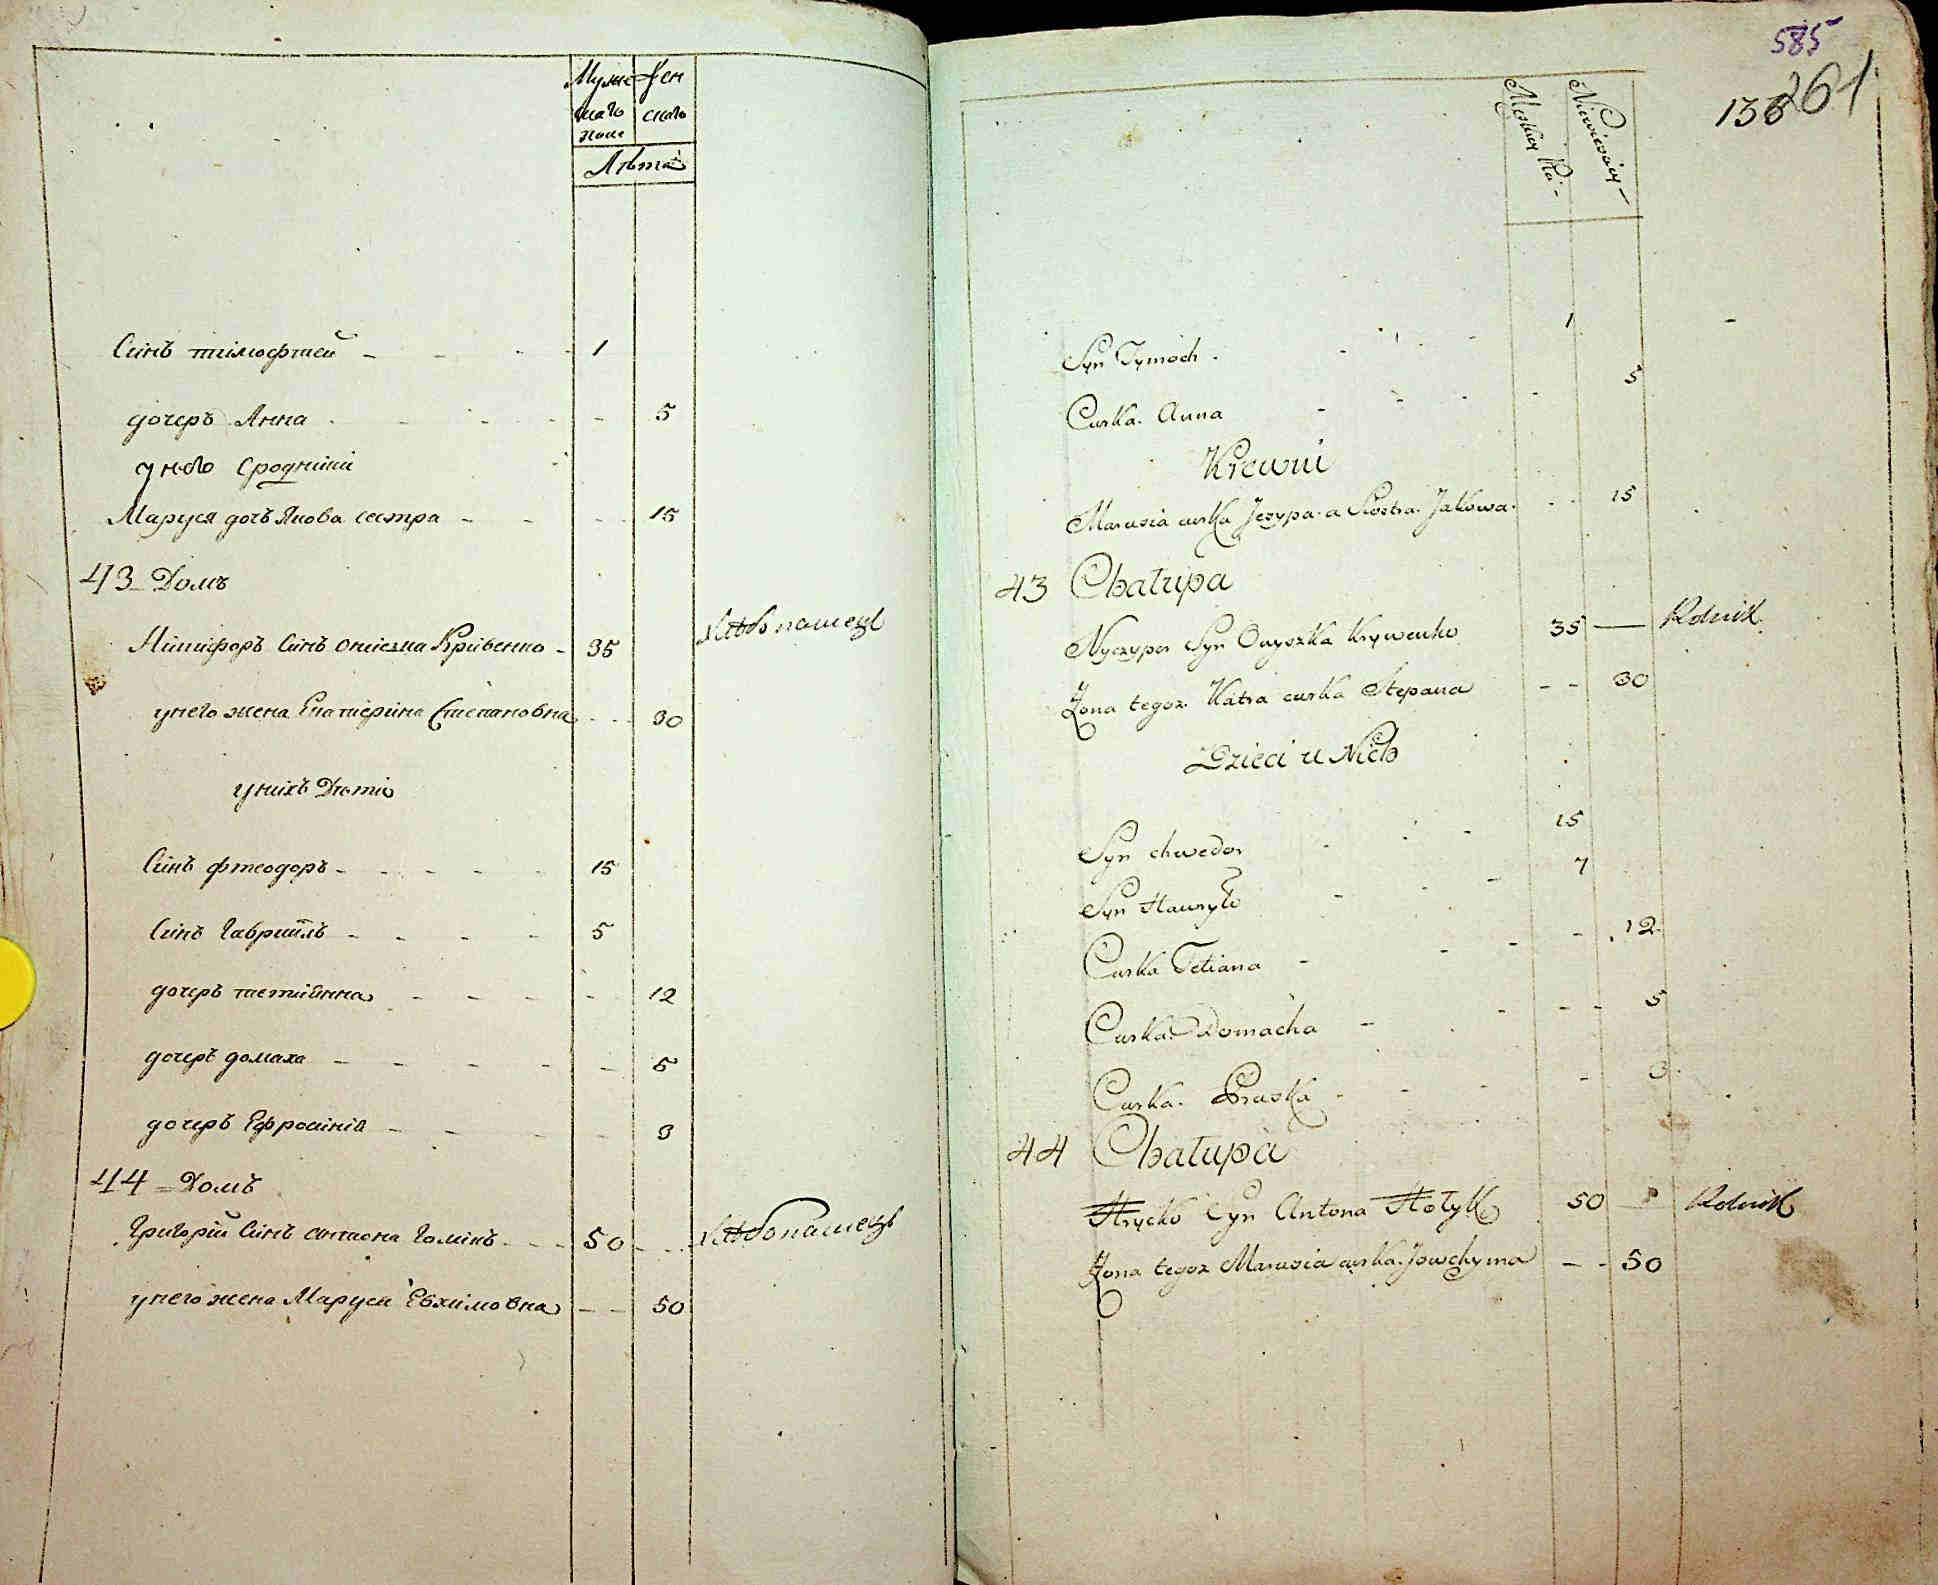 Мужескаго полу
Женскаго
Лѣта
Синъ тимофтей 1
дочеръ Анна 5
у него Сродники
Маруся дочъ Якова сестра 15
43 Домъ
Никифоръ Синъ онисзка Кривенко 35 хлѣбопашецъ
у него жена Екатерина Степановна 30
у нихъ Дѣти
Синъ фтеодоръ 15
Синъ Гаврíилъ 5
дочеръ тетиянна 12
дочеръ домаха 5
дочеръ Ефросинія 3
44 Домъ
Григорій Синъ антона Голикъ 50 хлѣбопашецъ
у него жена Маруся Евхимовна 50
585
261
136
Męskiey Płci
Niewieściey
Syn Tymoch 1
Curka Anna 5
Krewni
Marusia curka Jozypa a Siostra Jakowa 15
43 Chałupa
Nyczypor Syn Onyszka Krywenko 35 Rolnik
Żona tegoż Katra curka Stepana 30
Dzieci u Nich
Syn chwedor 15
Syn Hawryło 7
Curka Tetiana 12
Curka Domacha 5
Curka Praska 3
44 Chałupa
Hrycko Syn Antona Hołyk 50 Rolnik
Żona tegoż Marusia curka Jowchyma 50